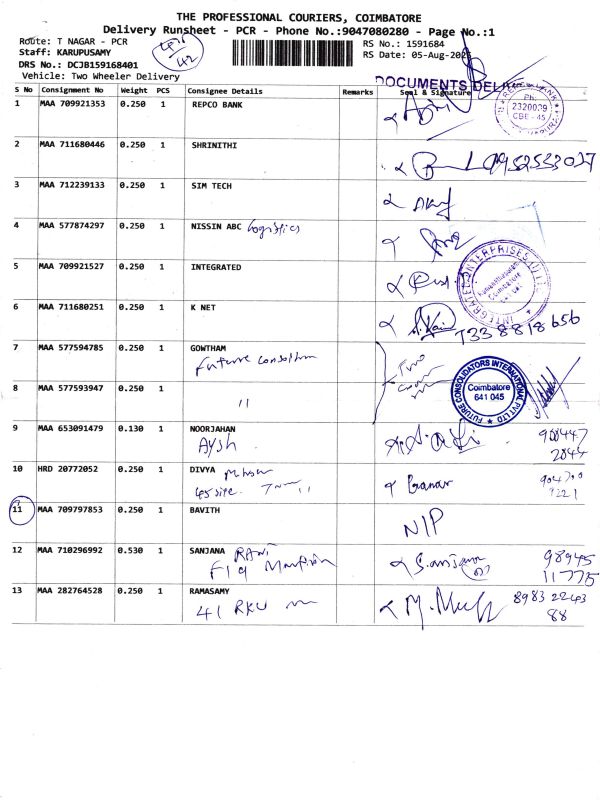 THE PROFESSIONAL COURIERS, COIMBATORE
Delivery Runsheet - PCR - Phone No.:9047080280 - Page No.:1
Route: T NAGAR - PCR
RS No.: 1591684
Staff: KARUPUSAMY
RS Date: 05-Aug-202
DRS No.: DCJB159168401
Vehicle: Two Wheeler Delivery
DOCUMENTS
S No Consignment No Weight PCS Consignee Details Remarks Seal & Signature
1 MAA 709921353 0.250 1 REPCO BANK
Ph: 2320029
CBE - 45
2 MAA 711680446 0.250 1 SHRINITHI
3 MAA 712239133 0.250 1 SIM TECH
4 MAA 577874297 0.250 1 NISSIN ABC Logistics
5 MAA 709921527 0.250 1 INTEGRATED
INTEGRATED ENTERPRISES
Coimbatore
6 MAA 711680251 0.250 1 K NET
7338818656
7 MAA 577594785 0.250 1 GOWTHAM
Future
8 MAA 577593947 0.250 1
"
FUTURE CONSOLIDATORS INTERNATIONAL PVT LTD
Coimbatore
641 045
9 MAA 653091479 0.130 1 NOORJAHAN
Aysh
10 HRD 20772052 0.250 1 DIVYA
11 MAA 709797853 0.250 1 BAVITH
NIP
12 MAA 710296992 0.530 1 SANJANA RANI
98945
11775
13 MAA 282764528 0.250 1 RAMASAMY
41 RKV
8983 2243
88